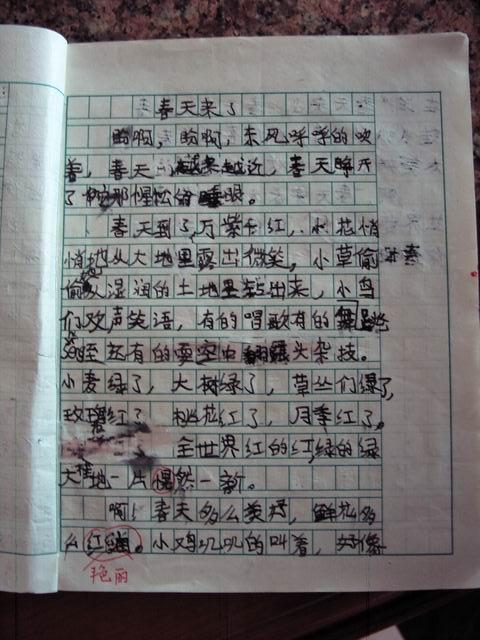 春天来了
盼啊，盼啊，东风呼呼的吹
着，春天越来越近，春天睁开
了她那惺忪的睡眼。
春天到了，万紫千红，小花悄
悄地从大地里露出微笑，小草偷
偷从湿润的土地里钻出来，小鸟
们欢声笑语，有的唱歌有的舞
有的在空中翻头杂技。
小麦绿了，大树绿了，草丛们绿了，
玫瑰红了，桃花红了，月季红了。
全世界红的红绿的绿
大地一片焕然一新。
啊！春天多么美好，鲜花多
么红润。小鸡叽叽的叫着，好像
艳丽